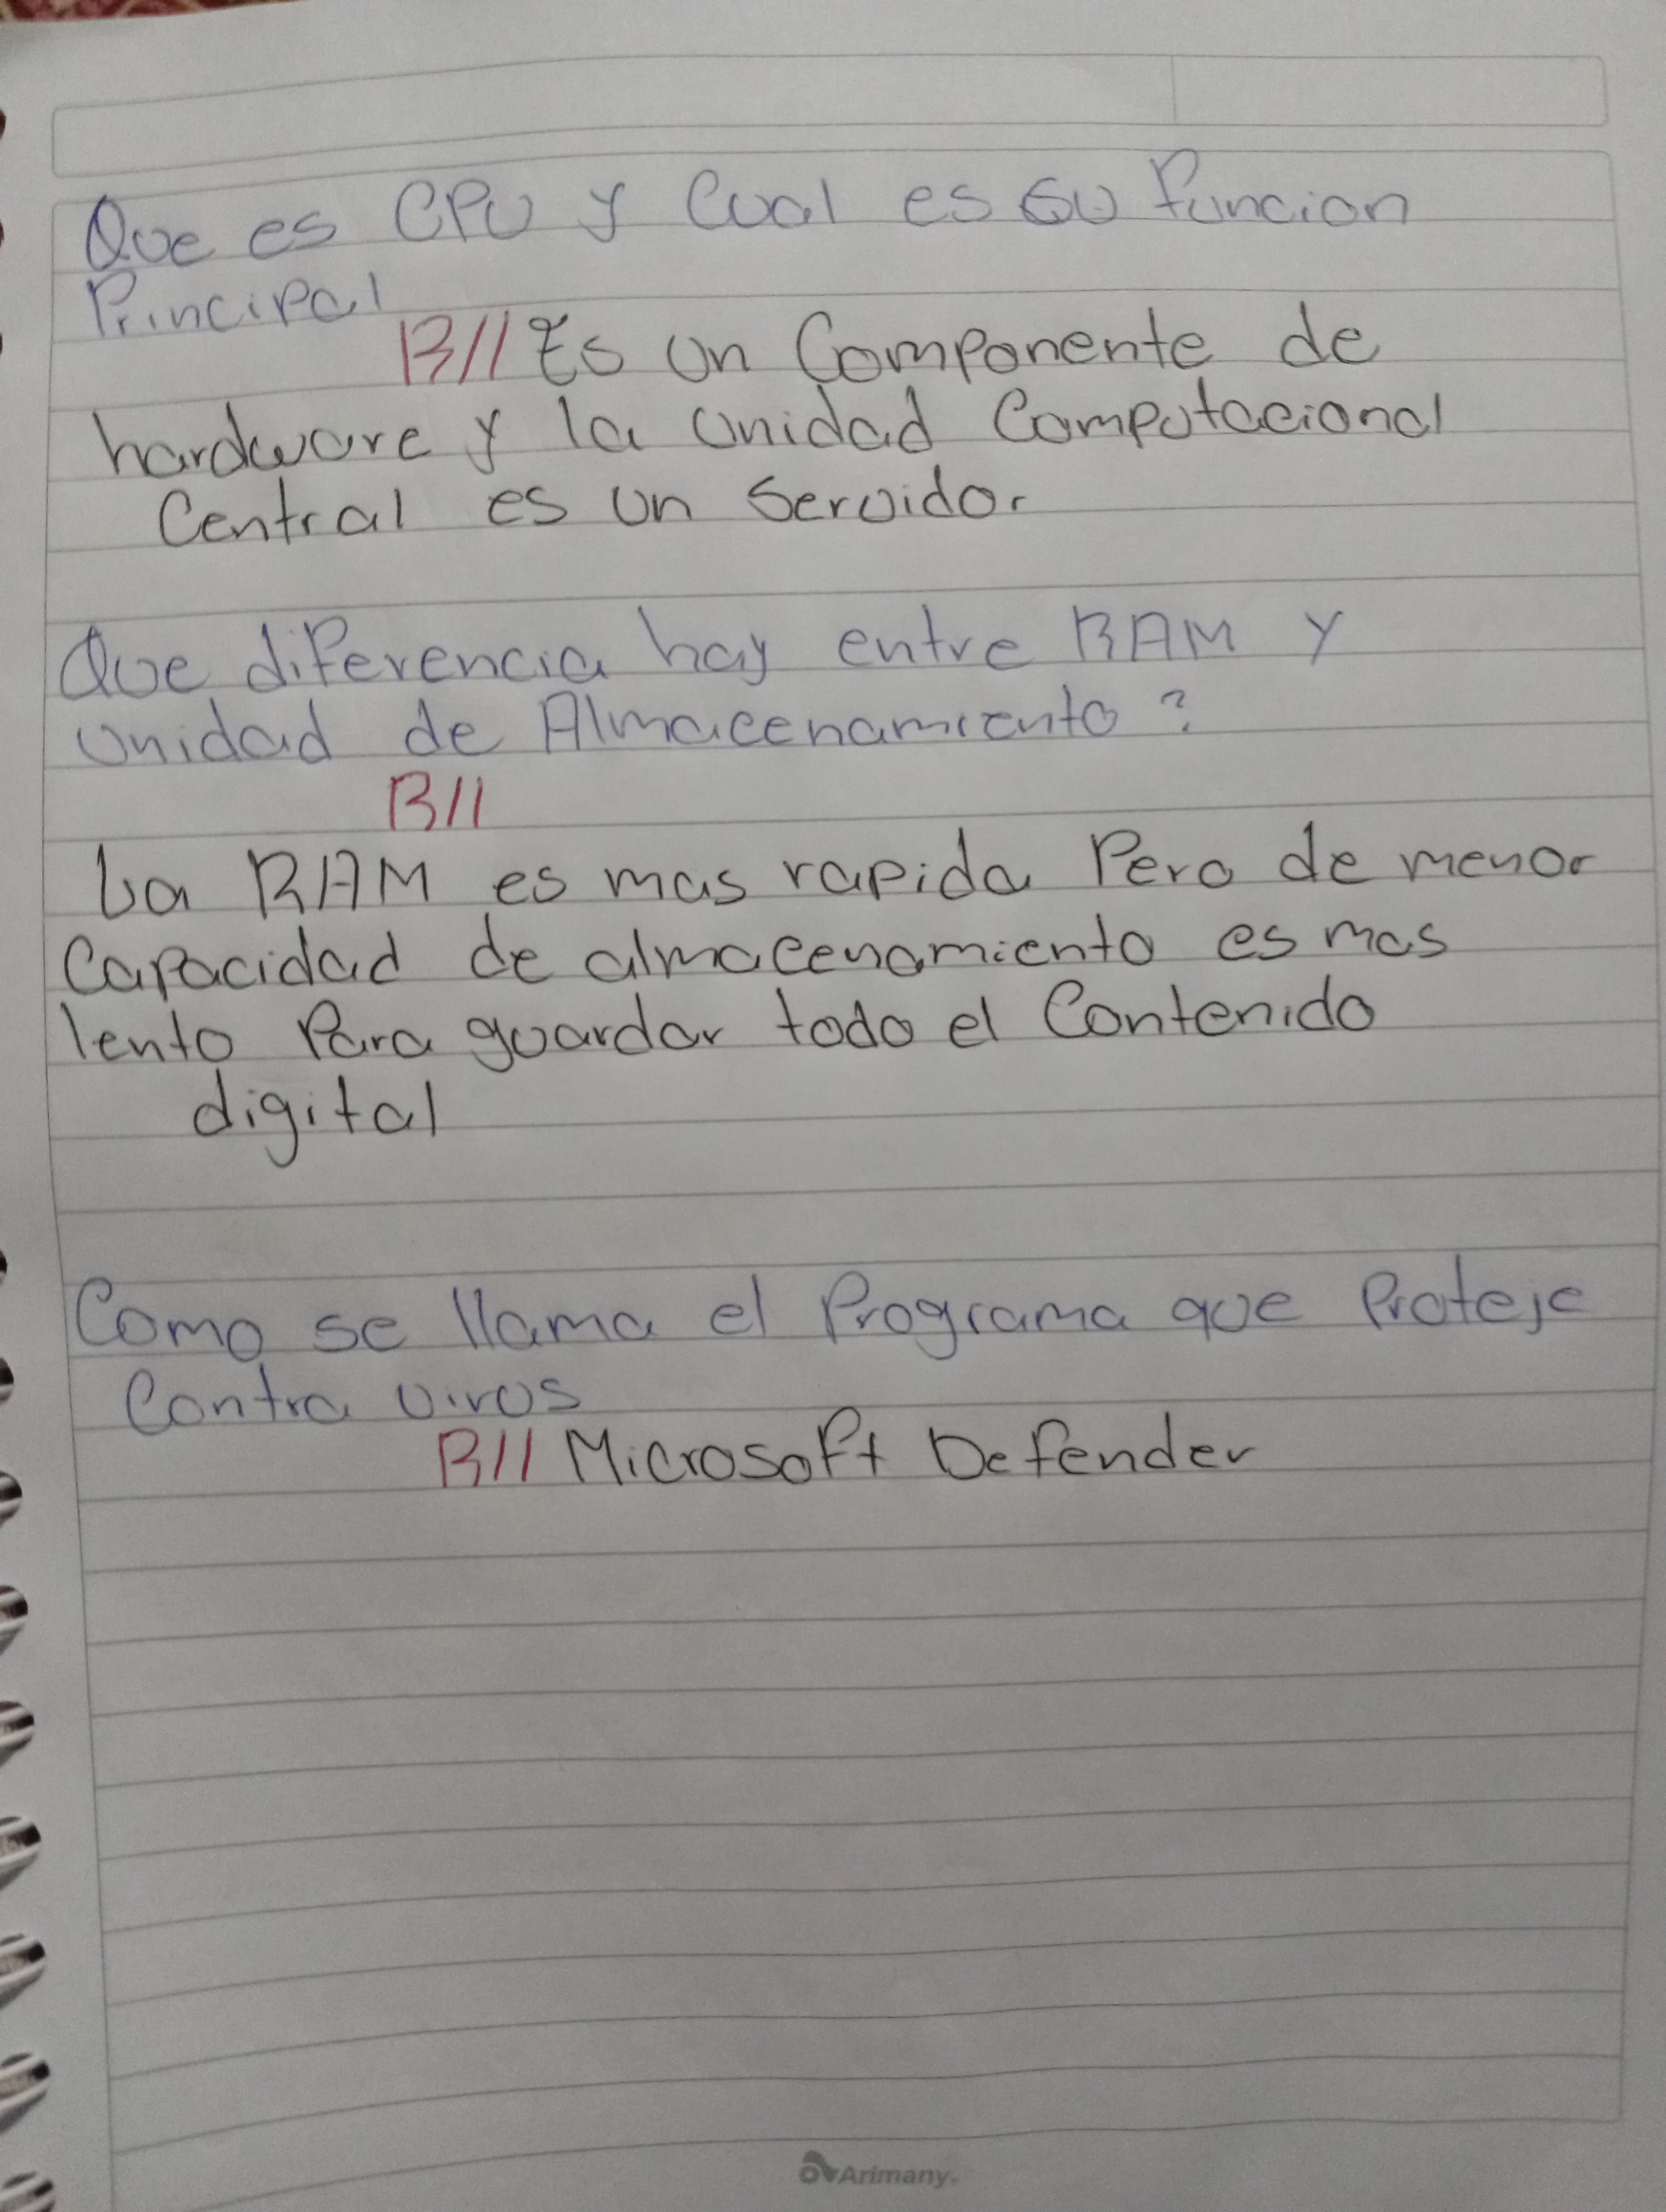 Que es CPU y Cual es su funcion
Principal
R// Es un Componente de
hardware y la unidad Computacional
Central es un Servidor
Que diferencia hay entre RAM y
unidad de Almacenamiento?
R//
La RAM es mas rapida Pero de menor
Capacidad de almacenamiento es mas
lento Para guardar todo el Contenido
digital
Como se llama el Programa que Proteje
Contra virus
R// Microsoft Defender
Arimany.